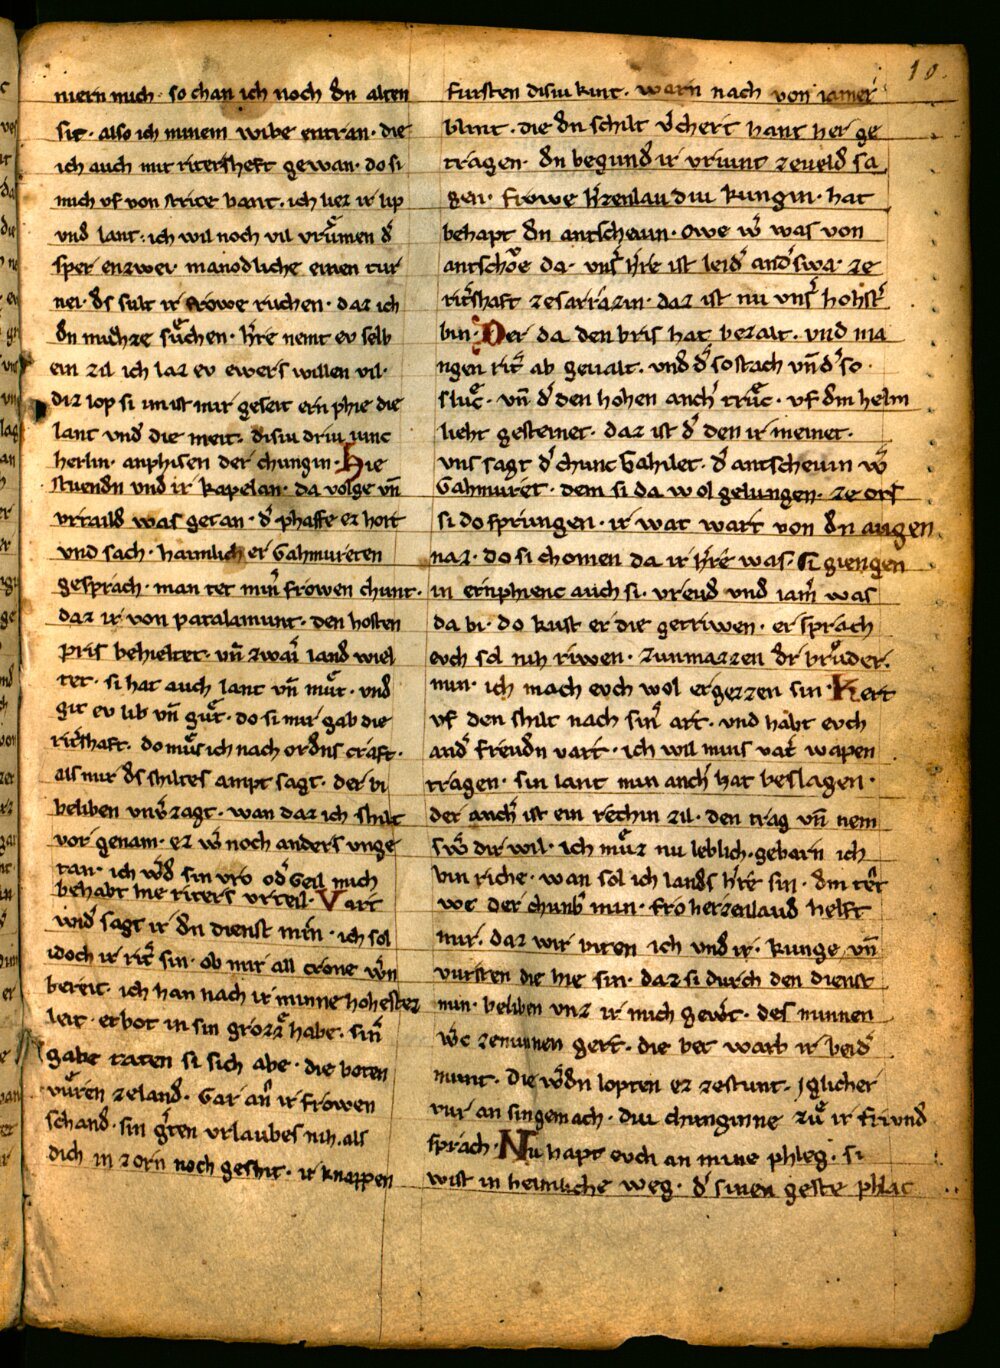 10.
niern mich · so chan ich noch dn alten
sit · also ich minem wibe entran · die
ich auch mit ritersheft gewan · do si
mich uf von strite bant · ich liez ir lip
und lant · ich wil noch vil vruͤmen d̕
sper enzwei · manodliche einen tur
nei · ds sult ir frowe ruchen · daz ich
dn muͤze suͤchen · h̕re nemt ev selb
ein zil ich laz ev ewers willen vil ·
diz lop si
lant und die meit · disiu driu iunc
herlin · anphisen der chungin · Hie
stuendn und ir kapelan · da volge vn̄
urtaild was getan · d̕ phaffe ez hort
und sach · haimlich er Gahmureten
gesprach · man tet min̕ frowen chunt ·
daz ir von patalamunt · den hosten
pris behieltet · vn̄ zwai̕ land wiel
tet · si hat auch lant vn̄ muͤt · und
git ev lib vn̄ guͤt · do si mir gab die
rit̕shaft · do muͤs ich nach ordns craft ·
als mir ds shiltes ampt sagt · der bi
beliben unv̕zagt · wan daz ich shilt
vor genam · ez w̕ noch anders unge
tan · ich w̕d sin vro od̕ Geil mich
behabt hie riters urteil · Vart
wid̕ sagt ir dn dienst min · ich sol
idoch ir rit̕ sin · ob mir all crone w̕n
bereit · ich han nach ir minne hohestez
leit · er bot in sin grozze habe · sin̕
gabe taten si sich abe · die boten
vuͤren zeland · Gar an̕ ir frowen
schand · sin g̕ten urlaubes niht als
dich in zorn noch geshit · ir knappen
fursten disiu kint · warn nach von iamer
blint · die dn schilt v̕chert hant her ge
tragen · dn begund ir vriunt zeveld sa
gen · frowe h̕zenlau diu kungin · hat
behapt dn antschevin · owe w̕ was von
antschoͤe da · uns̕ h̕re ist leid̕ and̕swa · ze
rit̕shaft ze sarrazin · daz ist nu uns̕ hohst̕
pin · Der da den bris hat bezalt · und ma
ngen rit̕ ab gevalt · und d̕ so stach vn̄ d̕ so ·
sluͤc · vn̄ d̕ den hohen anch̕ truͤc · uf dm helm
lieht gesteinet · daz ist d̕ den ir meinet ·
uns sagt d̕ chunc Gahilet · d̕ antschevin w̕
Gahmuret · dem si da wol gelungen · ze ors
si do sprungen · ir wat wart von dn augen
naz · do si chomen da ir h̕re was · si giengen
in er inphienc auch si · vreud und iam̕ was
da bi · do kust er die getriwen · er sprach
evch sol nih riwen · zunmazzen dr bruͤder ·
min · ich mach evch wol ergezzen sin · Kert
uf den shilt nach sin̕ art · und habt evch
and̕ freudn vart · ich wil mins vat̕ wapen
tragen · sin lant min anch̕ hat beslagen ·
der anch̕ ist ein rechin zil · den trag vn̄ nem
sw̕ dir wil · ich muͤz nu leblich gebarn ich
bin riche · wan sol ich lands h̕re sin · dm tet̕
we der chumb̕ min · fro herzenlaud helft
mir · daz wir biten ich und ir · kunge vn̄
vursten die hie sin · daz si durch den dienst
min · beliben unz ir mich gew̕t · des minnen
w̕c ze minnen gert · die bet warb ir beid̕
munt · die w̕dn lopten ez zestunt · Jglicher
vur an sin gemach · diu chunginne zuͤ ir friund
sprach · Nu hapt evch an mine phleg · si
wist in heimliche weg · d̕ sinen geste phlac